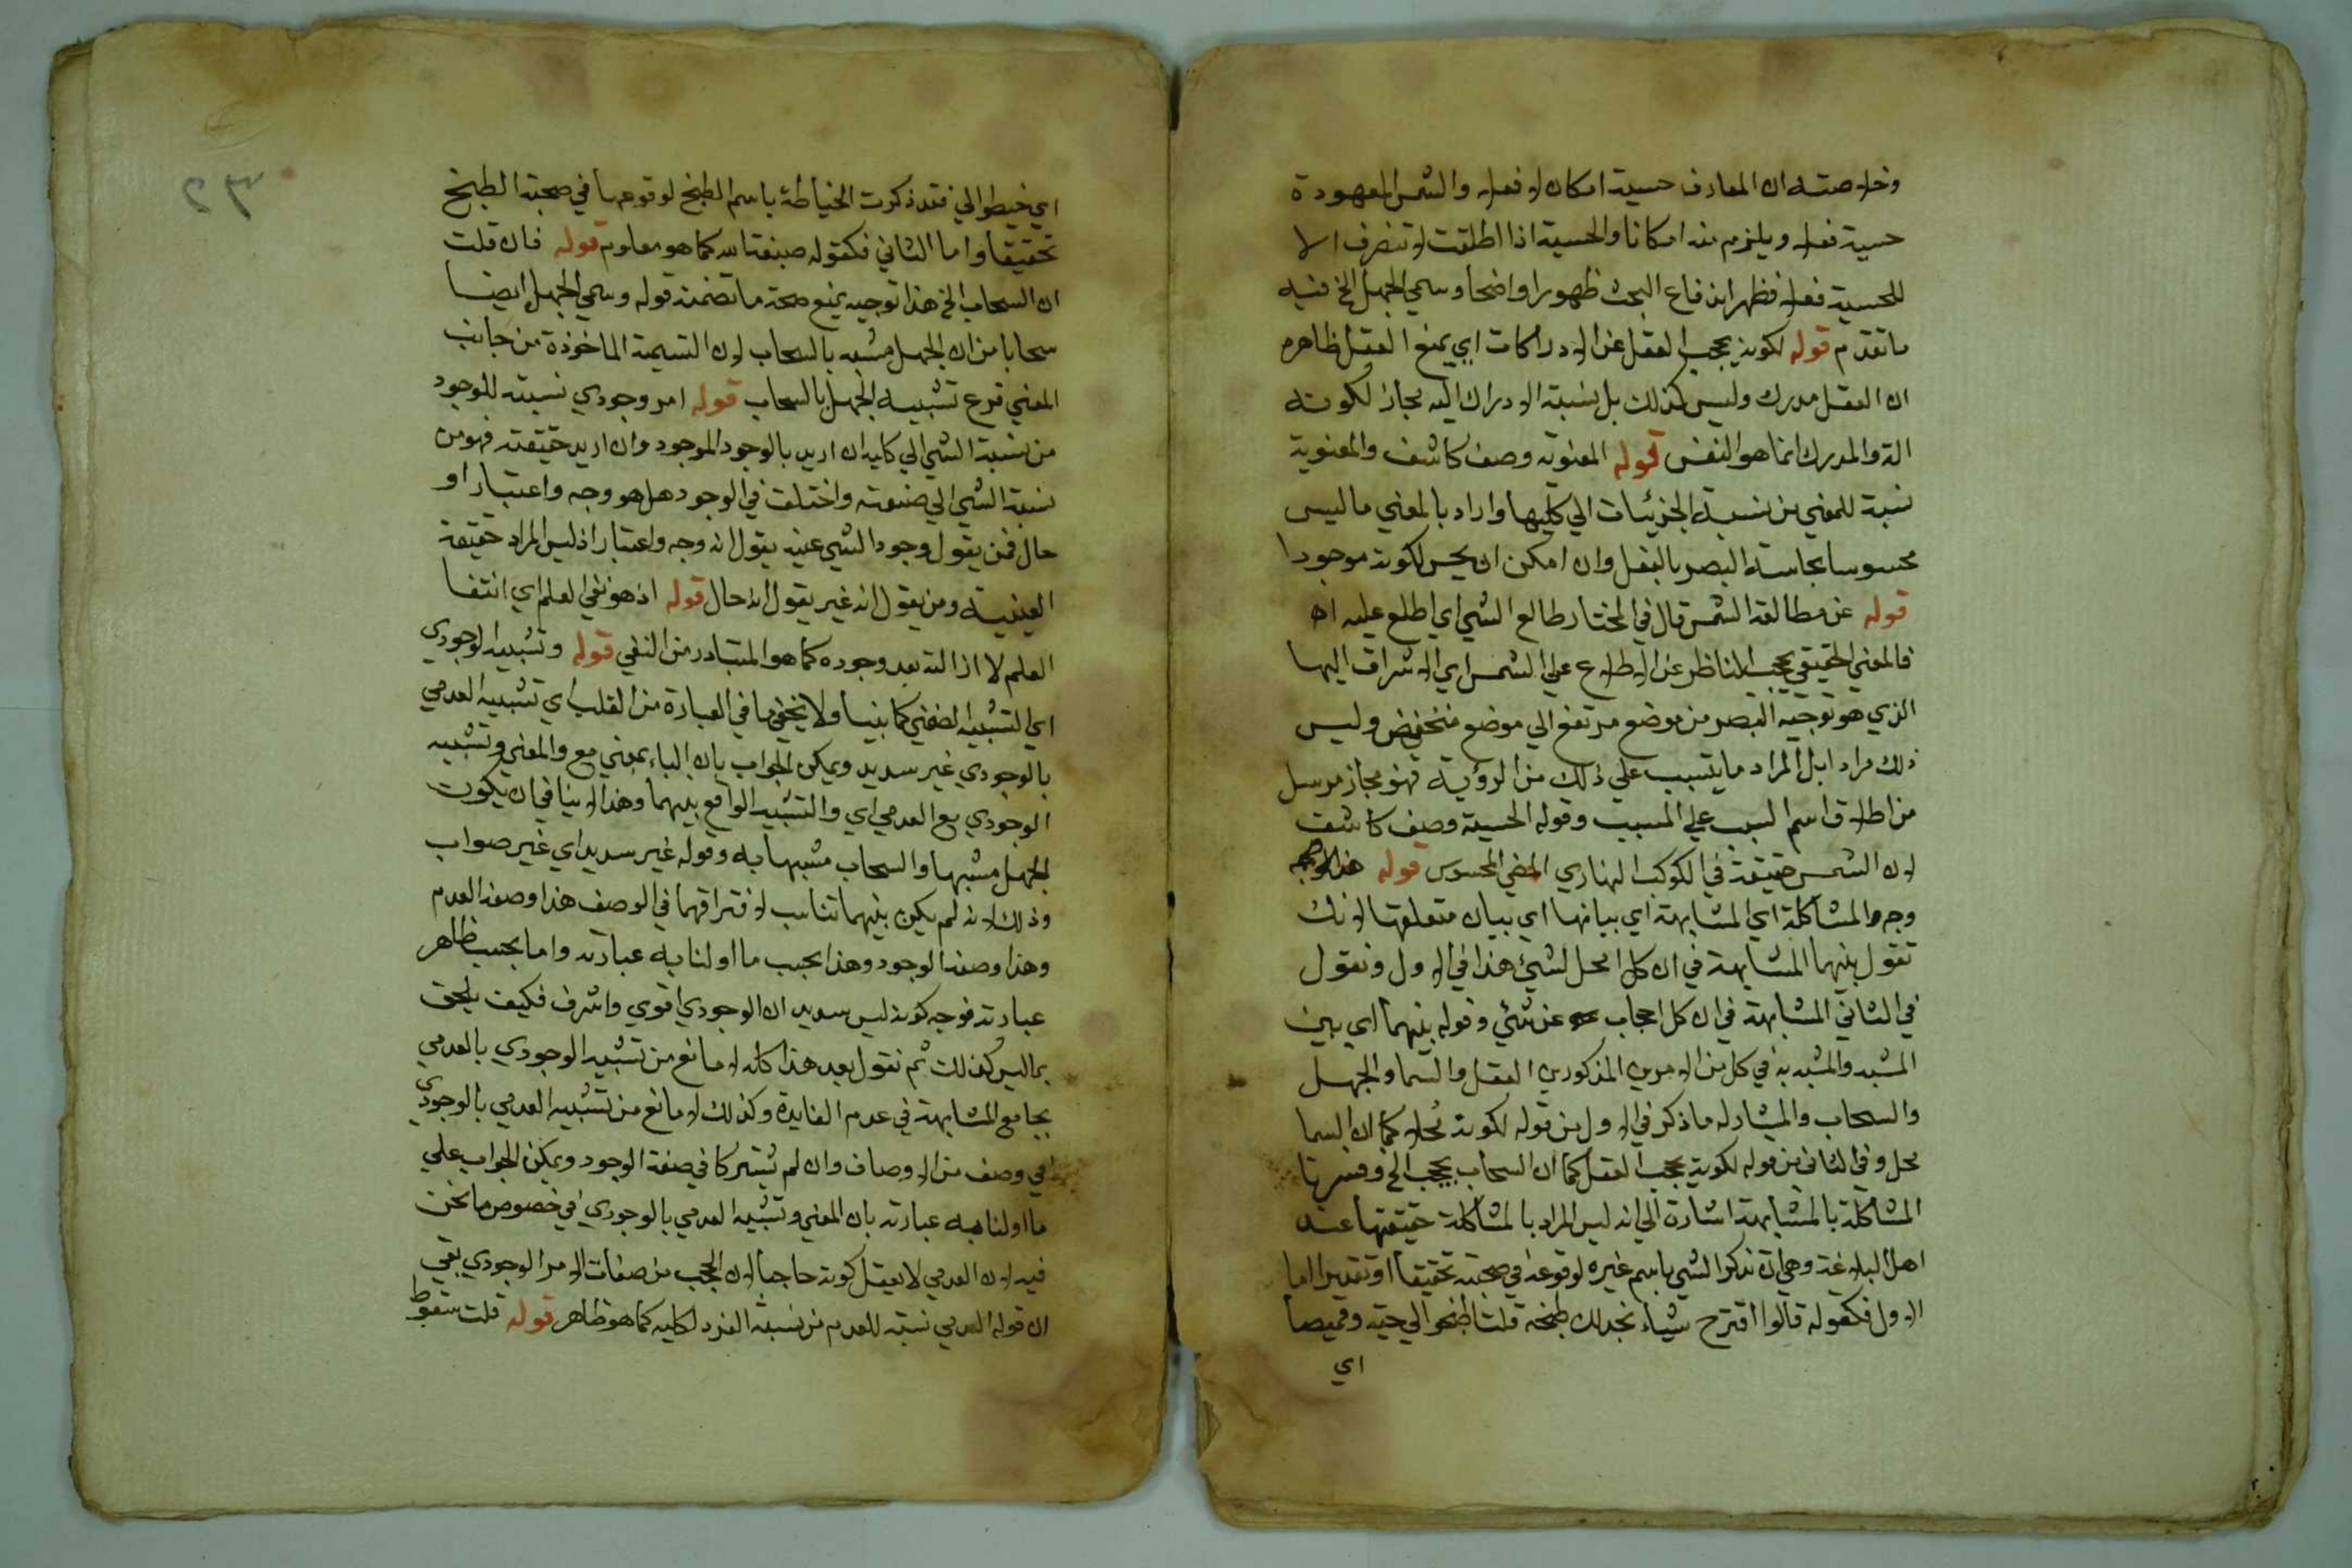 وخلاصته ان المعارف حسية امكانا لا فعلا والشمس المعهودة
حسية فعلا ويلزم منه امكانا والحسية اذا اطلقت لا تنصرف الا
للحسية فعلا فظهر اندفاع البحث ظهورا واضحا وسمي الجهل الخ فيه
ما تقدم قوله لكونه يحجب العقل عن الادراكات اي يمنع العقل ظاهره
ان العقل مدرك وليس كذلك بل نسبة الادراك اليه مجاز لكونه
الة والمدرك انما هو النفس قوله المعنوية وصف كاشف والمعنوية
نسبة للمعني من نسبة الجزئيات الي كليها واراد بالمعني ما ليس
محسوسا بحاسة البصر بالفعل وان امكن ان يحس لكونه موجودا
قوله عن مطالعة الشمس قال في المختار طالع الشي اي اطلع عليه اه
فالمعني الحقيقي يحجب الناظر عن الاطلاع علي الشمس اي الاشراف اليها
الذي هو توجيه البصر من موضع مرتفع الي موضع منخفض وليس
ذلك مرادا بل المراد ما يتسبب علي ذلك من الرؤية فهو مجاز مرسل
من اطلاق اسم السبب علي المسبب وقوله الحسية وصف كاشف
لان الشمس حقيقة في الكوكب النهاري المضي المحسوس قوله هذا توجيه
وجه المشاكلة اي المشابهة اي بيانها اي بيان متعلقها لانك
تقول بينهما المشابهة في ان كلا محل لشيء هذا في الاول وتقول
في الثاني المشابهة في ان كلا حجاب عن شئ وقوله بينهما اي بين
المشبه والمشبه به في كل من الامرين المذكورين العقل والسما والجهل
والسحاب والمشار له ما ذكر في الاول من قوله لكونه محلا كما ان السما
محل وفي الثاني من قوله لكونه يحجب العقل كما ان السحاب يحجب الخ وفسرنا
المشاكلة بالمشابهة اشارة الي انه ليس المراد بالمشاكلة حقيقتها عند
اهل البلاغة وهي ان تذكر الشي باسم غيره لوقوعه في صحبته تحقيقا او تقديرا اما
الاول فكقوله قالوا اقترح شيئا نجد لك طبخه قلت اطبخوا لي جبة وقميصا
اي
٣٢
اي خيطوا لي فقد ذكرت الخياطة باسم الطبخ لوقوعها في صحبة الطبخ
تحقيقا واما الثاني فكقوله صبغة الله كما هو معلوم قوله فان قلت
ان السحاب الخ هذا توجيه يمنع صحة ما تضمنه قوله وسمي الجهل ايضا
سحابا من ان الجهل مشبه بالسحاب لان التسمية الماخوذة من جانب
المعني فرع تشبيه الجهل بالسحاب قوله امر وجودي نسبته للوجود
من نسبة الشي الي كليه ان اريد بالوجود الموجود وان اريد حقيقته فهو من
نسبة الشي الي صفته واختلف في الوجود هل هو وجه واعتبار او
حال فمن يقول وجود الشي عينه يقول انه وجه واعتبار اذ ليس المراد حقيقة
العينية ومن يقول انه غير يقول انه حال قوله اذ هو نفي العلم اي انتفا
العلم لا ازالته بعد وجوده كما هو المتبادر من النفي قوله وتشبيه الوجودي
اي التشبيه الضمني كما بينا ولا يخفي ما في العبارة من القلب اي تشبيه العدمي
بالوجودي غير سديد ويمكن الجواب بان الباء بمعني مع والمعني وتشبيه
الوجودي مع العدمي اي والتشبيه الواقع بينهما وهذا لا ينافي ان يكون
الجهل مشبها والسحاب مشبها به وقوله غير سديد اي غير صواب
وذلك لانه لم يكن بينهما تناسب لافتراقهما في الوصف هذا وصفه العدم
وهذا وصفه الوجود وهذا بحسب ما اولنا به عبارته واما بحسب ظاهر
عبارته فوجه كونه ليس سديد ان الوجودي اقوي واشرف فكيف يلحق
بما ليس كذلك ثم نقول بعد هذا كله لا مانع من تشبيه الوجودي بالعدمي
بجامع المشابهة في عدم الفايدة وكذلك لا مانع من تشبيه العدمي بالوجودي
في وصف من الاوصاف وان لم يشتركا في صفة الوجود ويمكن الجواب علي
ما اولنا به عبارته بان المعني وتشبيه العدمي بالوجودي في خصوص ما نحن
فيه لان العدمي لا يعقل كونه حاجبا لان الحجب من صفات الامر الوجودي بقي
ان قوله العدمي نسبة للعدم من نسبة الفرد لكليه كما هو ظاهر قوله قلت سقوط